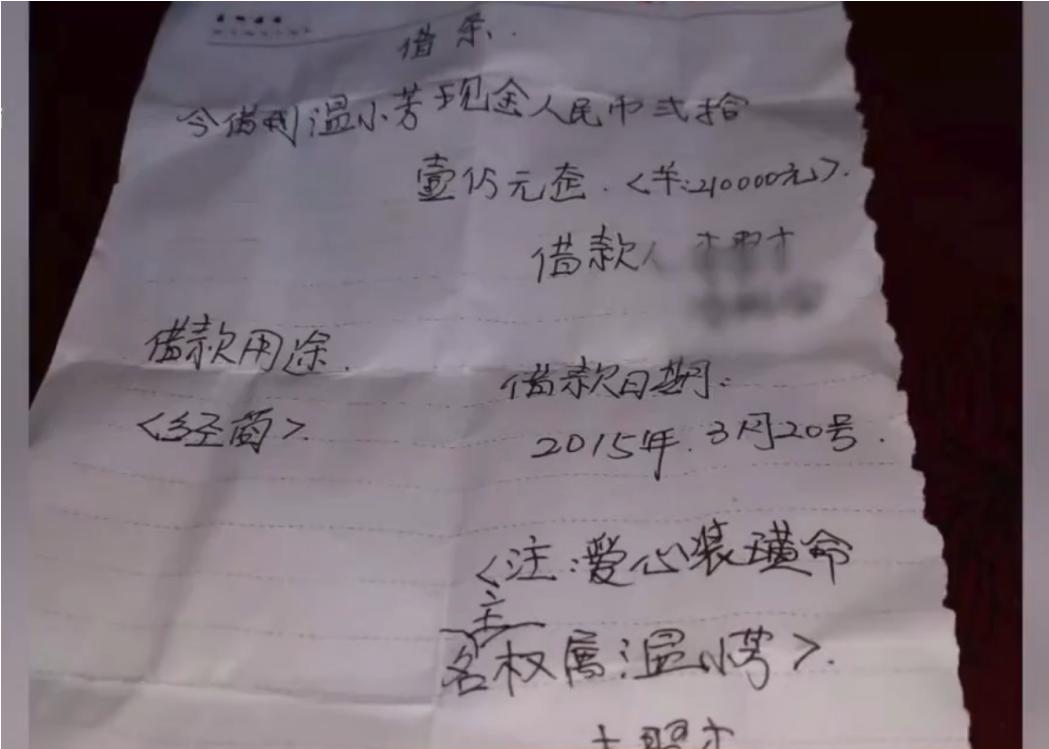 借条.
今借到温小芳现金人民币贰拾
壹仟元整.<羊:210000元>.
借款人
借款用途.
借款日期:
<经商>.
2015年.3月20号.
<注:爱心装璜命
主
名权属:温小芳>.